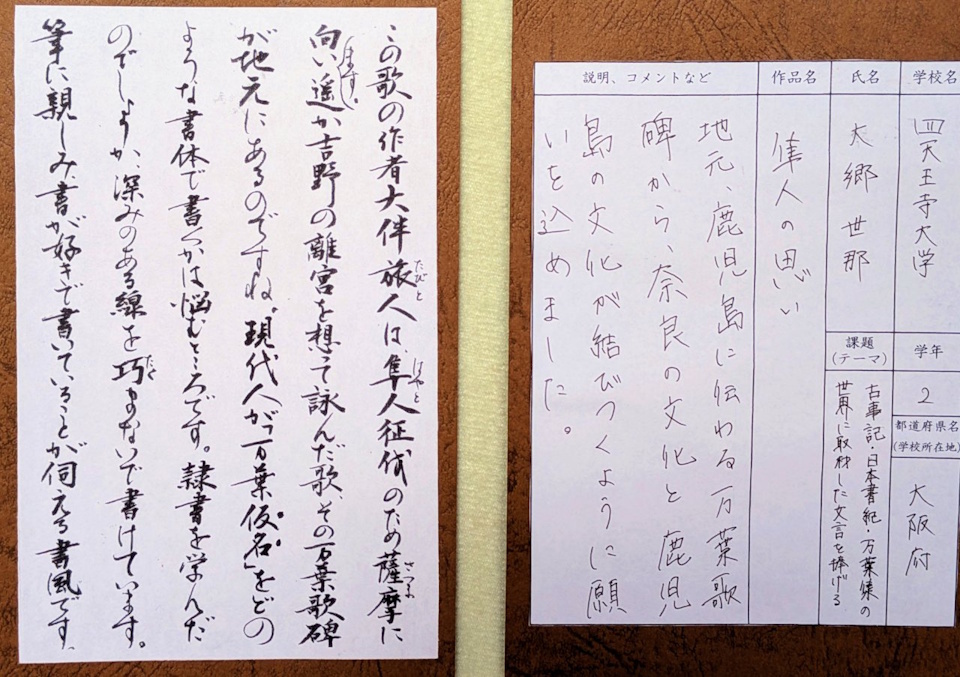 学校名
四天王寺大学
学年
2
都道府県名
(学校所在地)
大阪府
氏名
太郷 世那
課題
(テーマ)
古事記・日本書紀・万葉集の
世界に取材した文言を捧げる
作品名
隼人の思い
説明、コメントなど
地元、鹿児島に伝わる万葉歌
碑から、奈良の文化と鹿児
島の文化が結びつくように願
いを込めました。
この歌の作者大伴旅人は隼人征伐のため薩摩に
たびと
はやと
さつま
向い遥か吉野の離宮を想って詠んだ歌、その万葉歌碑
が地元にあるのですね。現代人が「万葉仮名」をどの
ような書体で書くかは悩むところです。隷書を学んだ
のでしょうか、深みのある線を巧まないで書けています。
たく
筆に親しみ、書が好きで書いていることが伺える書風です。